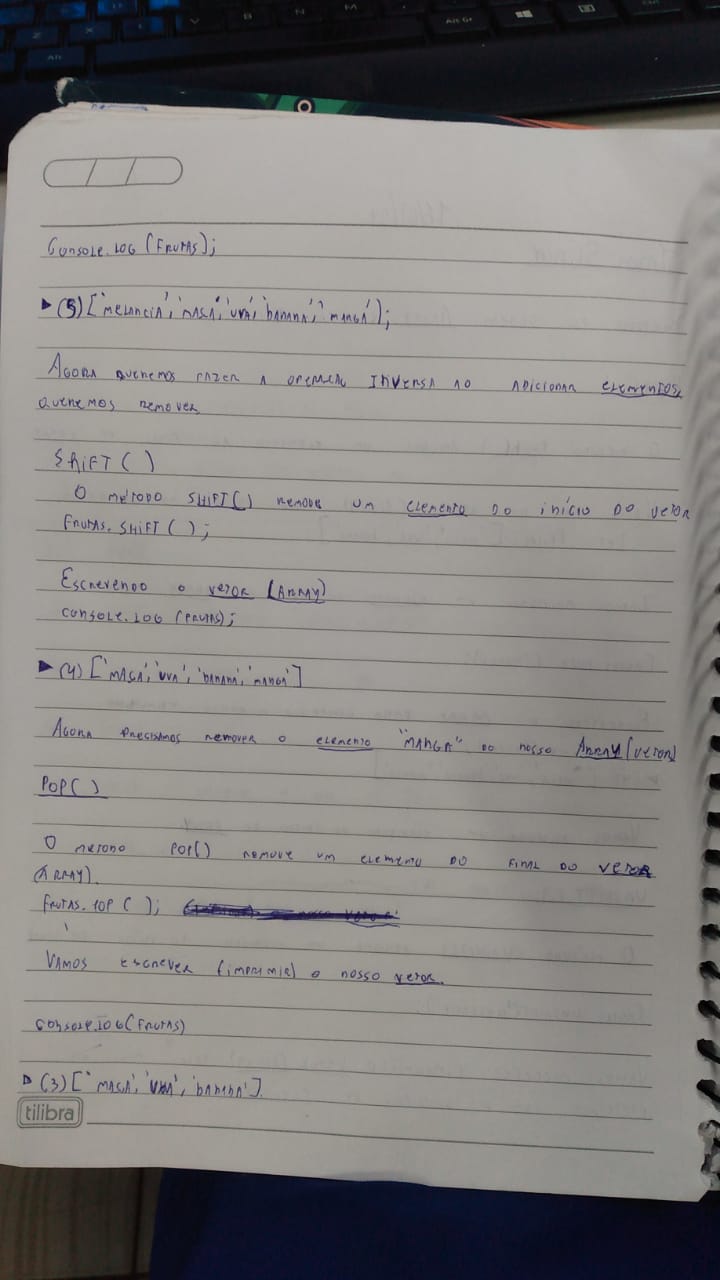 Console.LOG (FRUTAS);
▶ (5) ['MELANCIA', 'MAÇA', 'UVA', 'BANANA', 'MANGA');
AGORA QUEREMOS FAZER A OPERAÇÃO INVERSA AO ADICIONAR ELEMENTOS,
QUEREMOS REMOVER
SHIFT ( )
O MÉTODO SHIFT() REMOVE UM ELEMENTO DO INÍCIO DO VETOR
FRUTAS. SHIFT ( );
ESCREVENDO O VETOR (ARRAY)
CONSOLE.LOG (FRUTAS);
▶ (4) ['MAÇA', 'UVA', 'BANANA', 'MANGA']
AGORA PRECISAMOS REMOVER O ELEMENTO "MANGA" DO NOSSO ARRAY (VETOR)
POP( )
O METODO POP() REMOVE UM ELEMENTO DO FINAL DO VETOR
(ARRAY).
FRUTAS. POP ( );
VAMOS ESCREVER (IMPRIMIR) O NOSSO VETOR.
CONSOLE.LOG(FRUTAS)
▷ (3) ['MAÇA', 'UVA', 'BANANA'].
tilibra